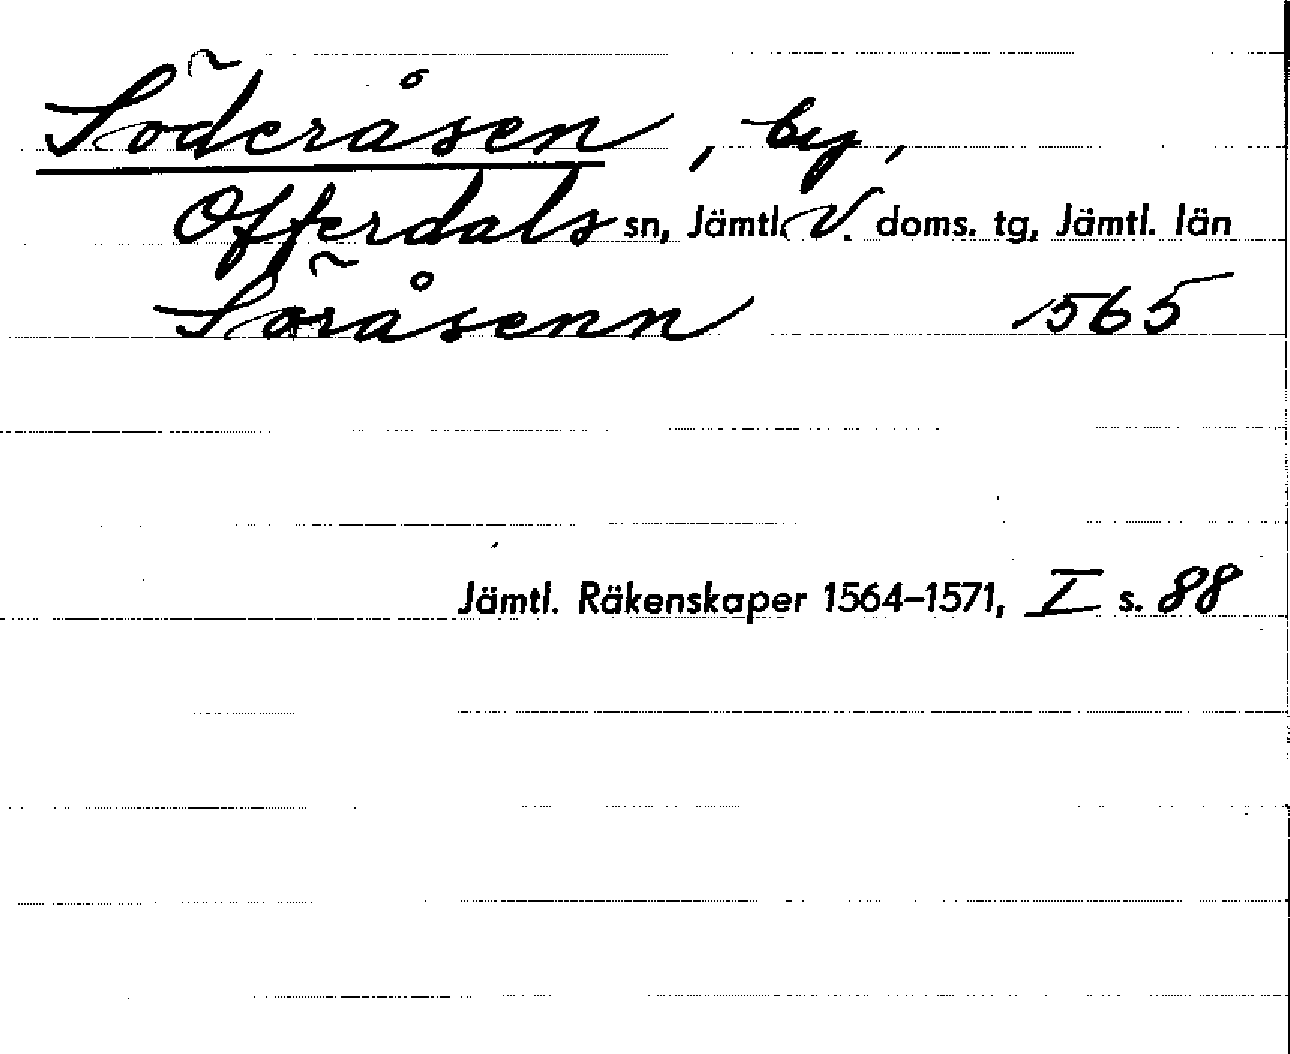 Söderåsen, by,
Offerdals sn, Jämtl. V. doms. tg, Jämtl. län
Söråsenn 1565
Jämtl. Räkenskaper 1564–1571, I s. 88